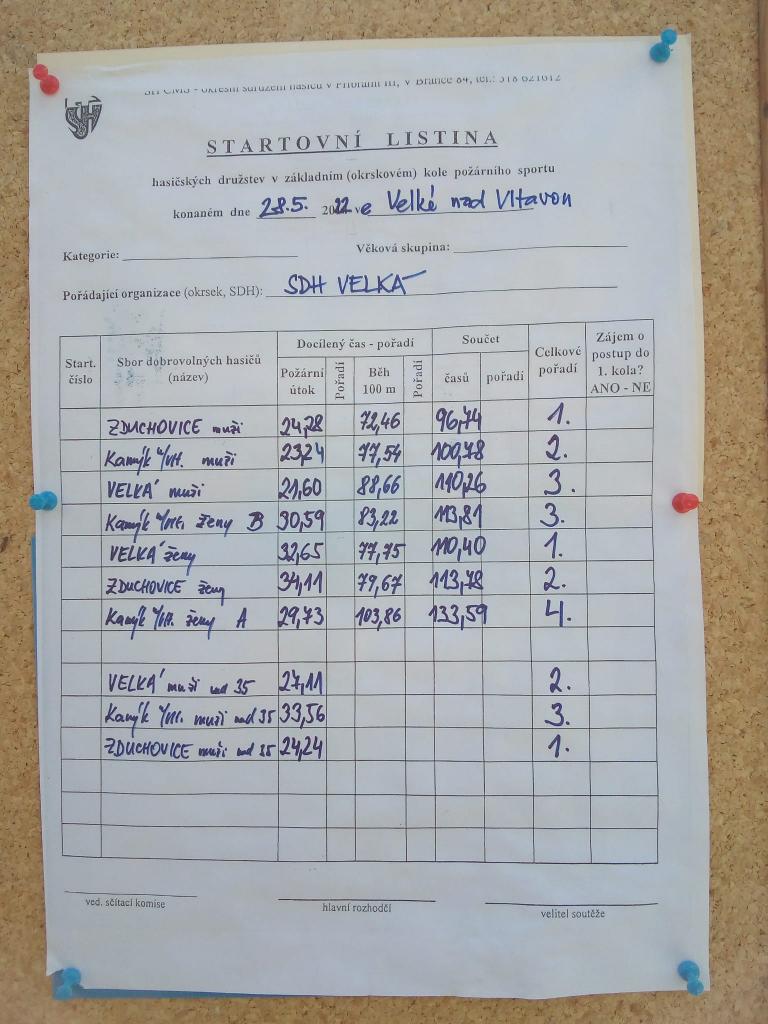 SH ČMS - okresní sdružení hasičů v Příbrami III, V Brance 84, tel.: 318 621612
STARTOVNÍ LISTINA
hasičských družstev v základním (okrskovém) kole požárního sportu
konaném dne 28.5. 2022 ve Velké nad Vltavou
Kategorie: Věková skupina:
Pořádající organizace (okrsek, SDH): SDH VELKÁ
Start. číslo Sbor dobrovolných hasičů (název) Docílený čas - pořadí Součet Celkové pořadí Zájem o postup do 1. kola? ANO - NE
Požární útok Pořadí Běh 100 m Pořadí časů pořadí
ZDUCHOVICE muži 24,28 72,46 96,74 1.
Kamýk n/Vlt. muži 23,24 77,54 100,78 2.
VELKÁ muži 21,60 88,66 110,26 3.
Kamýk n/Vlt. ženy B 30,59 83,22 113,81 3.
VELKÁ ženy 32,65 77,75 110,40 1.
ZDUCHOVICE ženy 34,11 79,67 113,78 2.
Kamýk n/Vlt. ženy A 29,73 103,86 133,59 4.
VELKÁ muži nad 35 27,11 2.
Kamýk n/Vlt. muži nad 35 33,56 3.
ZDUCHOVICE muži nad 35 24,24 1.
ved. sčítací komise hlavní rozhodčí velitel soutěže